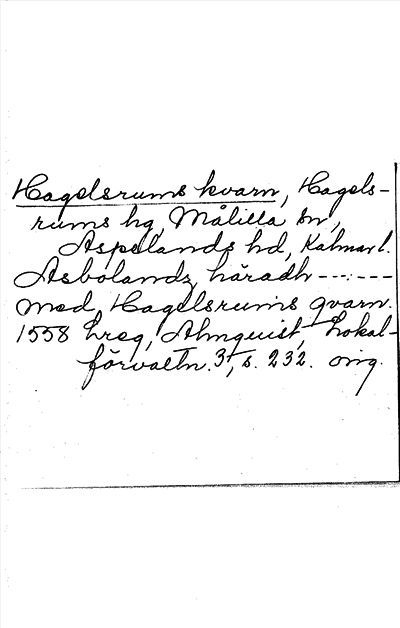 Hagelsrums kvarn, Hagels-
rums hg, Målilla sn,
Aspelands hd, Kalmar l.
Asbolandz häradh ---:---
med Hagelsrums qvarn.
1558 hreg, Almquist, Lokal-
förvaltn. 3, s. 232. orig.